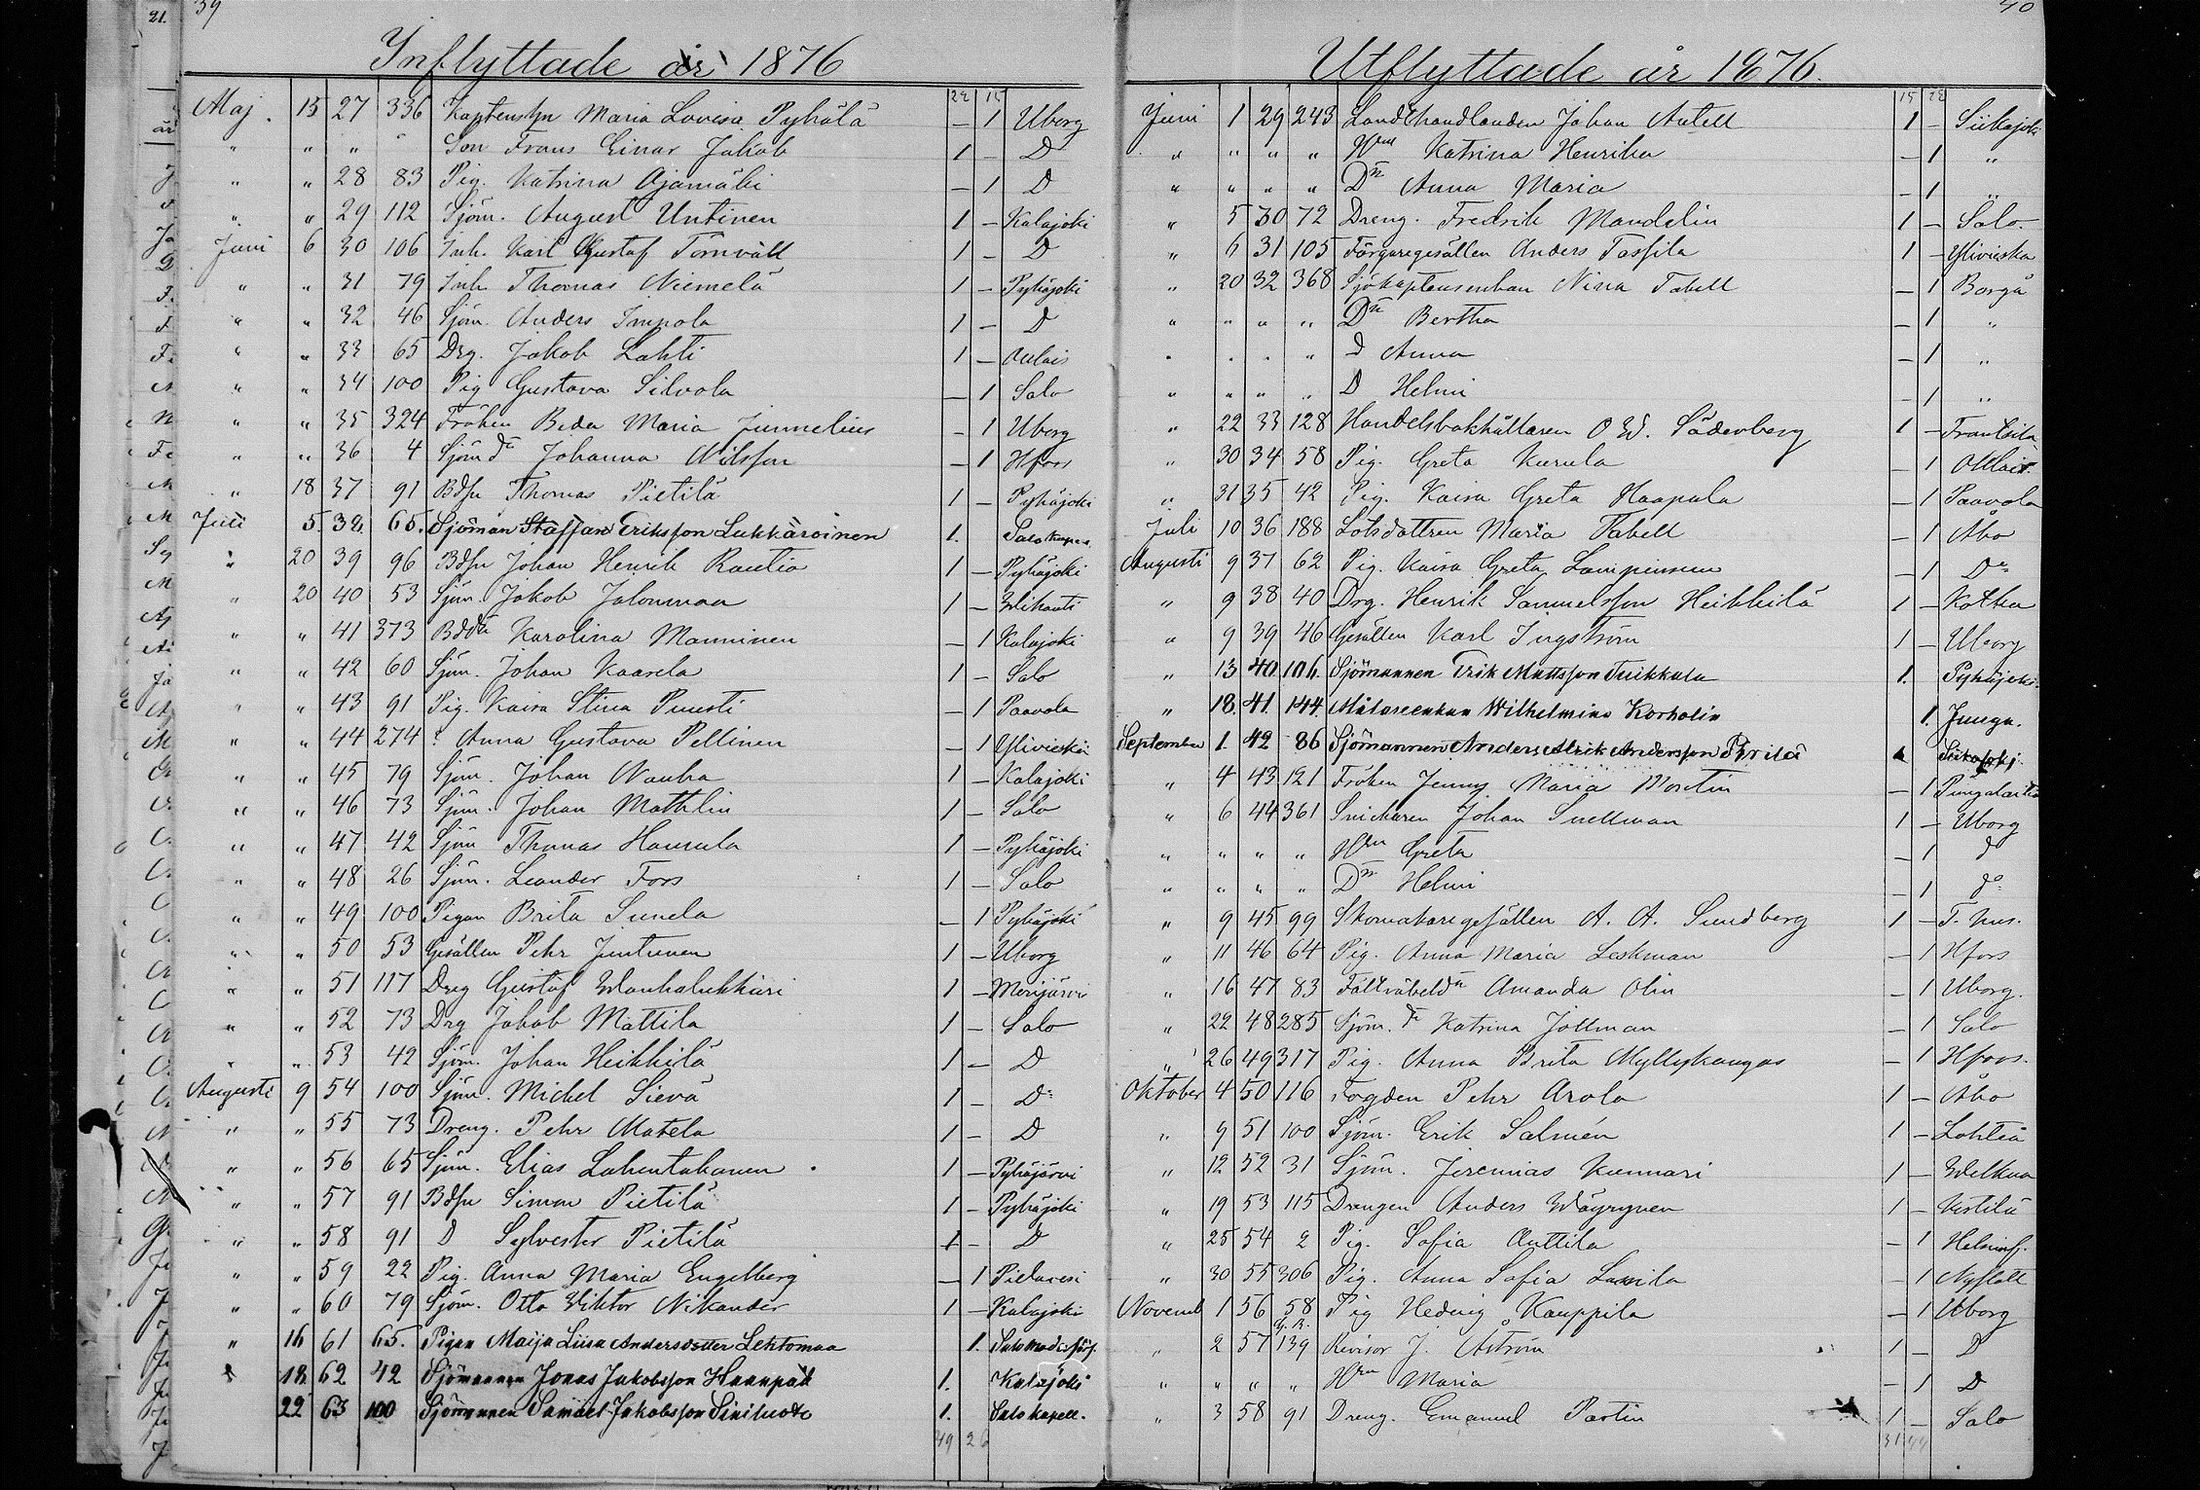 21. 39
Inflyttade år 1876
22 15
Maj. 15 27 336 Kaptensfn Maria Lovisa Pyhälä — 1 Uborg
" " " " Son Frans Einar Jakob 1 — D
" " 28 83 Pig. Katrina Ojamäki — 1 D
" " 29 112 Sjöm. August Untinen 1 — Kalajoki
Juni 6 30 106 Inh. Karl Gustaf Törnvall 1 — D
" " 31 79 Inh. Thomas Niemelä 1 — Pyhäjoki
" " 32 46 Sjöm. Anders Impola 1 — D
" " 33 65 Drg. Jakob Lahti 1 — Oulais
" " 34 100 Pig Gustava Silvola — 1 Salo
" " 35 324 Fröken Beda Maria Junnelius — 1 Uborg
" " 36 4 Sjöm dr Johanna Nilsson — 1 Hfors
" 18 37 91 Bdsn Thomas Pietilä 1 — Pyhäjoki
Juli 5. 38. 65. Sjöman Staffan Eriksson Lukkaroinen 1. Salo kapel.
" 20 39 96 Bdsn Johan Henrik Rautio 1 — Pyhäjoki
" 20 40 53 Sjöm. Jakob Jalonmaa 1 — Wihanti
" " 41 373 Bddr Karolina Manninen — 1 Kalajoki
" " 42 60 Sjöm. Johan Kaarela 1 — Salo
" " 43 91 Pig. Kaisa Stina Puusti — 1 Paavola
" " 44 274 : Anna Gustava Pellinen — 1 Ylivieska
" " 45 79 Sjöm. Johan Nauha 1 — Kalajoki
" " 46 73 Sjöm. Johan Mathlin 1 — Salo
" " 47 42 Sjöm Thomas Hannula 1 — Pyhäjoki
" " 48 26 Sjöm. Leander Fors 1 — Salo
" " 49 100 Pigan Brita Sunela — 1 Pyhäjoki
" " 50 53 Gesällen Pehr Juntunen 1 — Uborg
" " 51 117 Dreg Gustaf Wanhalukkari 1 — Merijärvi
" " 52 73 Drg Jakob Mattila 1 — Salo
" " 53 42 Sjöm. Johan Heikkilä 1 — D
Augusti 9 54 100 Sjöm. Michel Sievä 1 — Do
" " 55 73 Dreng. Pehr Matela 1 — D
" " 56 65 Sjöm. Elias Lahentakanen 1 — Pyhäjärvi
" " 57 91 Bdsn Simon Pietilä 1 — Pyhäjoki
" " 58 91 D Sylvester Pietilä 1 — D
" " 59 22 Pig. Anna Maria Engelberg — 1 Pielavesi
" " 60 79 Sjöm. Otto Viktor Nikander 1 — Kalajoki
" 16 61 65. Pigan Maija Liisa Andersdotter Lehtomaa 1. Salo moderförs.
" 18 62 42 Sjömannen Jonas Jakobsson Haanpää 1. Kalajoki
22 63 100 Sjömannen Samuel Jakobsson Siniluoto 1. Salo kapell.
49 26
40
Utflyttade år 1876.
15 22
Juni 1 29 243 Landthandlanden Johan Antell 1 — Siikajoki
" " " " Hru Katrina Henrika — 1 "
" " " " Dr Anna Maria — 1 "
" 5 30 72 Dreng. Fredrik Mandelin 1 — Salo.
" 6 31 105 Färgaregesällen Anders Tassila 1 — Ylivieska
" 20 32 368 Sjökaptensenkan Nina Tabell — 1 Borgå
" " " " Dr Bertha — 1 "
" " " " d Anna — 1 "
" " " " D Helmi — 1 "
" 22 33 128 Handelsbokhållaren O W. Söderberg 1 — Frantsila
" 30 34 58 Pig. Greta Kurula — 1 Oulais.
" 31 35 42 Pig. Kaisa Greta Haapala — 1 Paavola
Juli 10 36 188 Lotsdottren Maria Tabell — 1 Åbo
Augusti 9 37 62 Pig. Kaisa Greta Lampinen — 1 Do
" 9 38 40 Drg. Henrik Samuelsson Heikkilä 1 — Kotka
" 9 39 46 Gesällen Karl Ingström 1 — Uborg
" 13 40 106. Sjömannen Erik Mattsson Tuikkala 1. Pyhäjoki.
" 18. 41. 144. Målareenkan Wilhelmina Korholin 1. Junga.
September 1. 42 86 Sjömannen Anders Alrik Andersson Prilä 1 Siikajoki.
" 4 43 121 Fröken Jenny Maria Mortin — 1 Pungalaitio
" 6 44 361 Snickaren Johan Snellman 1 — Uborg
" " " " Hru Greta — 1 d
" " " " Dr Helmi — 1 do
" 9 45 99 Skomakaregesällen A. A. Sundberg 1 — T. hus.
" 11 46 64 Pig. Anna Maria Leskman — 1 Hfors
" 16 47 83 Fältväbeldr Amanda Olin — 1 Uborg.
" 22 48 285 Sjöm. dr Katrina Jollman — 1 Salo
" 26 49 317 Pig. Anna Brita Myllykangas — 1 Hfors.
Oktober 4 50 116 Fogden Pehr Arola 1 — Åbo
" 9 51 100 Sjöm. Erik Salmén 1 — Lohteå
" 12 52 31 Sjöm. Jeremias Kunnari 1 — Welkua
" 19 53 115 Drengen Anders Wäyrynen 1 — Vestilä
" 25 54 2 Pig. Sofia Anttila — 1 Helsinf.
" 30 55 306 Pig. Anna Sofia Lassila — 1 Nystatt
Novemb 1 56 58 Pig Hedvig Kauppila — 1 Uborg
" 2 57 139 Revisor J. Åström 1 — D
" " " " Hru Maria — 1 D
" 3 58 91 Dreng. Emanuel Partin 1 — Salo
31 44